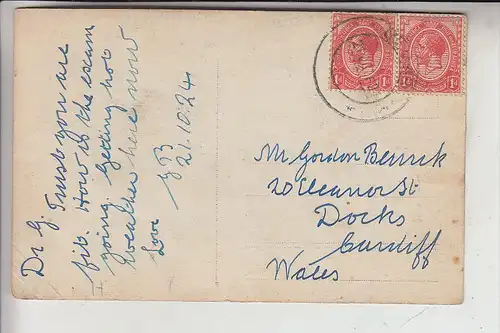 Dr G. Trust you are
fit. How is the exam
going. Getting hot
weather here now
Love
21.10.24
Mr Gordon
20 Eleanor St
Docks
Cardiff
Wales
1d 1d
1d 1d